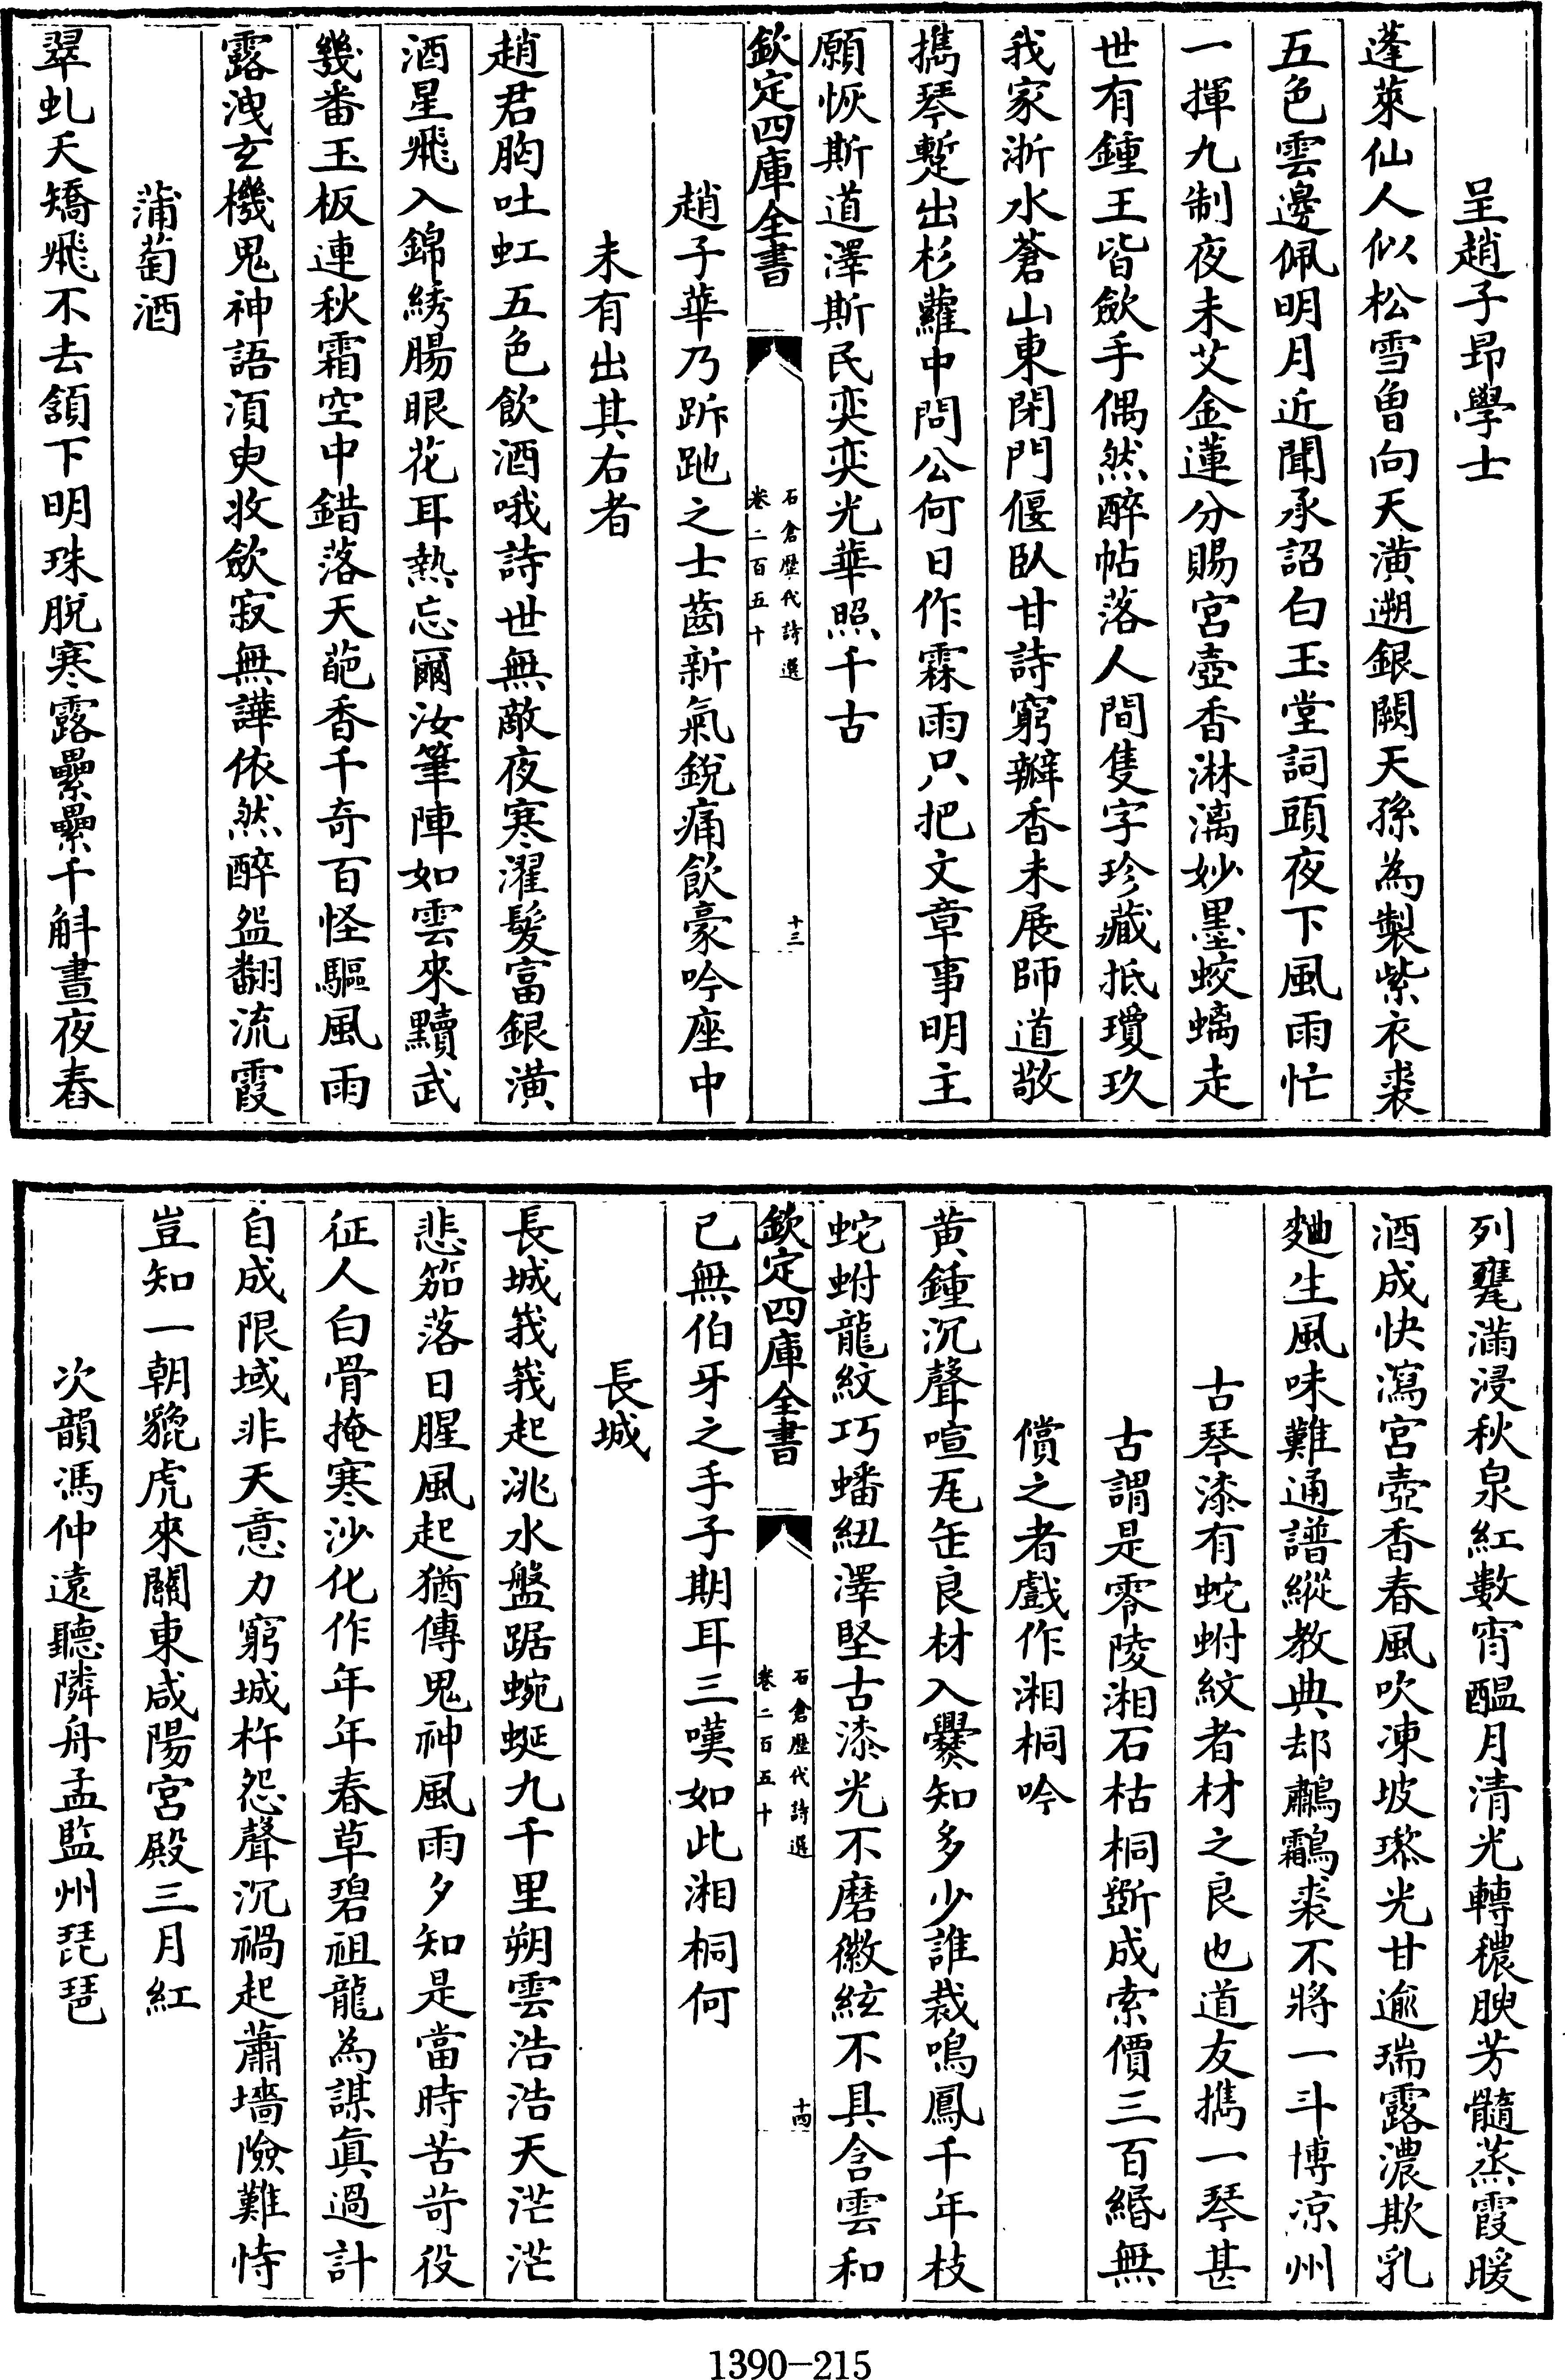 呈趙子昂學士
蓬萊仙人似松雪曽向天潢遡銀闕天孫為製紫衣裘
五色雲邊佩明月近聞承詔白玉堂詞頭夜下風雨忙
一揮九制夜未艾金蓮分賜宮壺香淋漓妙墨蛟螭走
世有鍾王皆歛手偶然醉帖落人間隻字珍藏抵瓊玖
我家浙水蒼山東閉門偃臥甘詩窮瓣香未展師道敬
攜琴蹔出杉蘿中問公何日作霖雨只把文章事明主
願恢斯道澤斯民奕奕光華照千古
欽定四庫全書
石倉歴代詩選
卷二百五十
十三
趙子華乃跅跑之士齒新氣銳痛飲豪吟座中
未有出其右者
趙君胸吐虹五色飲酒哦詩世無敵夜寒濯髮富銀潢
酒星飛入錦綉腸眼花耳熱忘爾汝筆陣如雲來黷武
幾番玉板連秋霜空中錯落天葩香千奇百怪驅風雨
露洩玄機鬼神語湏臾收歛寂無譁依然醉盌翻流霞
蒲萄酒
翠虬天矯飛不去頷下明珠脫寒露纍纍千斛晝夜舂
列甕滿浸秋泉紅數宵醖月清光轉穠腴芳髓蒸霞暖
酒成快瀉宮壺香春風吹凍坡瓈光甘逾瑞露濃欺乳
麯生風味難通譜縱教典却鷫鸘裘不將一斗博凉州
古琴漆有蛇蚹紋者材之良也道友攜一琴甚
古謂是零陵湘石枯桐斵成索價三百緡無
償之者戲作湘桐吟
黄鍾沉聲喧瓦缶良材入爨知多少誰裁鳴鳳千年枝
蛇蚹龍紋巧蟠紐澤堅古漆光不磨徽絃不具含雲和
已無伯牙之手子期耳三嘆如此湘桐何
欽定四庫全書
石倉歴代詩選
卷二百五十
十四
長城
長城峩峩起洮水盤踞蜿蜒九千里朔雲浩浩天茫茫
悲笳落日腥風起猶傳鬼神風雨夕知是當時苦苛役
征人白骨掩寒沙化作年年春草碧祖龍為謀真過計
自成限域非天意力窮城杵怨聲沉禍起蕭墻險難恃
豈知一朝貔虎來關東咸陽宮殿三月紅
次韻馮仲遠聽隣舟孟監州琵琶
1390-215